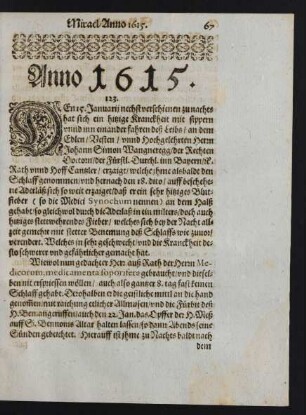 Miracl Anno 1615. 67
Anno 1615.
123.
DEn 15. Januarij nechstverschienen zu nachts
hat sich ein hitzige Kranckheit mit
vnnd vnn einander fahren deß Leibs/ an dem
Edlen/ Vesten/ vnnd Hochgelehrten Herrn
Johann Simon Wangnereegg/ der Rechten
Doctorn/ der Fürstl. Durchl. inn Bayern/ ꝛc.
Rath vnnd Hoff Cantzler/ erzaigt/ welche jhme alsbald den
Schlaff genommen/ vnd hernach den 18. dito/ auff beschehe-
ne Aderläß sich so weit erzaiget/ daß er ein sehr hitziges Blüt-
fieber (so die Medici Synochum nennen) an dem Halß
gehabt/ so gleichwol durch die Aderläß in ein milters/ doch auch
hitziges fieber/ welches sich bey der Nacht alle
zeit genehrt mit stetter Benemung deß Schlaffs wie zuuor/
verendert. Welches in sehr geschwecht/ vnd die Kranckheit de-
sto schwerer vnd gefährlicher gemacht hat.
Wiewol nun gedachter Herr auß Rath der Herrn Me-
dicorum, medicamenta soporifera gebraucht/ vnd diesel-
ben nit erspriessen wöllen/ auch also gantzer 8. tag fast keinen
Schlaff gehabt. Derohalben er die geistliche mittl an die hand
genommen/ mit reichung etlicher Allmusen/ vnd die Fürbitt deß
H. Ben. angeruffen/ auch den 22. Jan. das Opffer der H. Meß
auff S. Bennonis Altar halten lassen/ so dann Abends seine
Sünden gebeichtet. Hierauff ist jhme zu Nachts baldt nach
dem